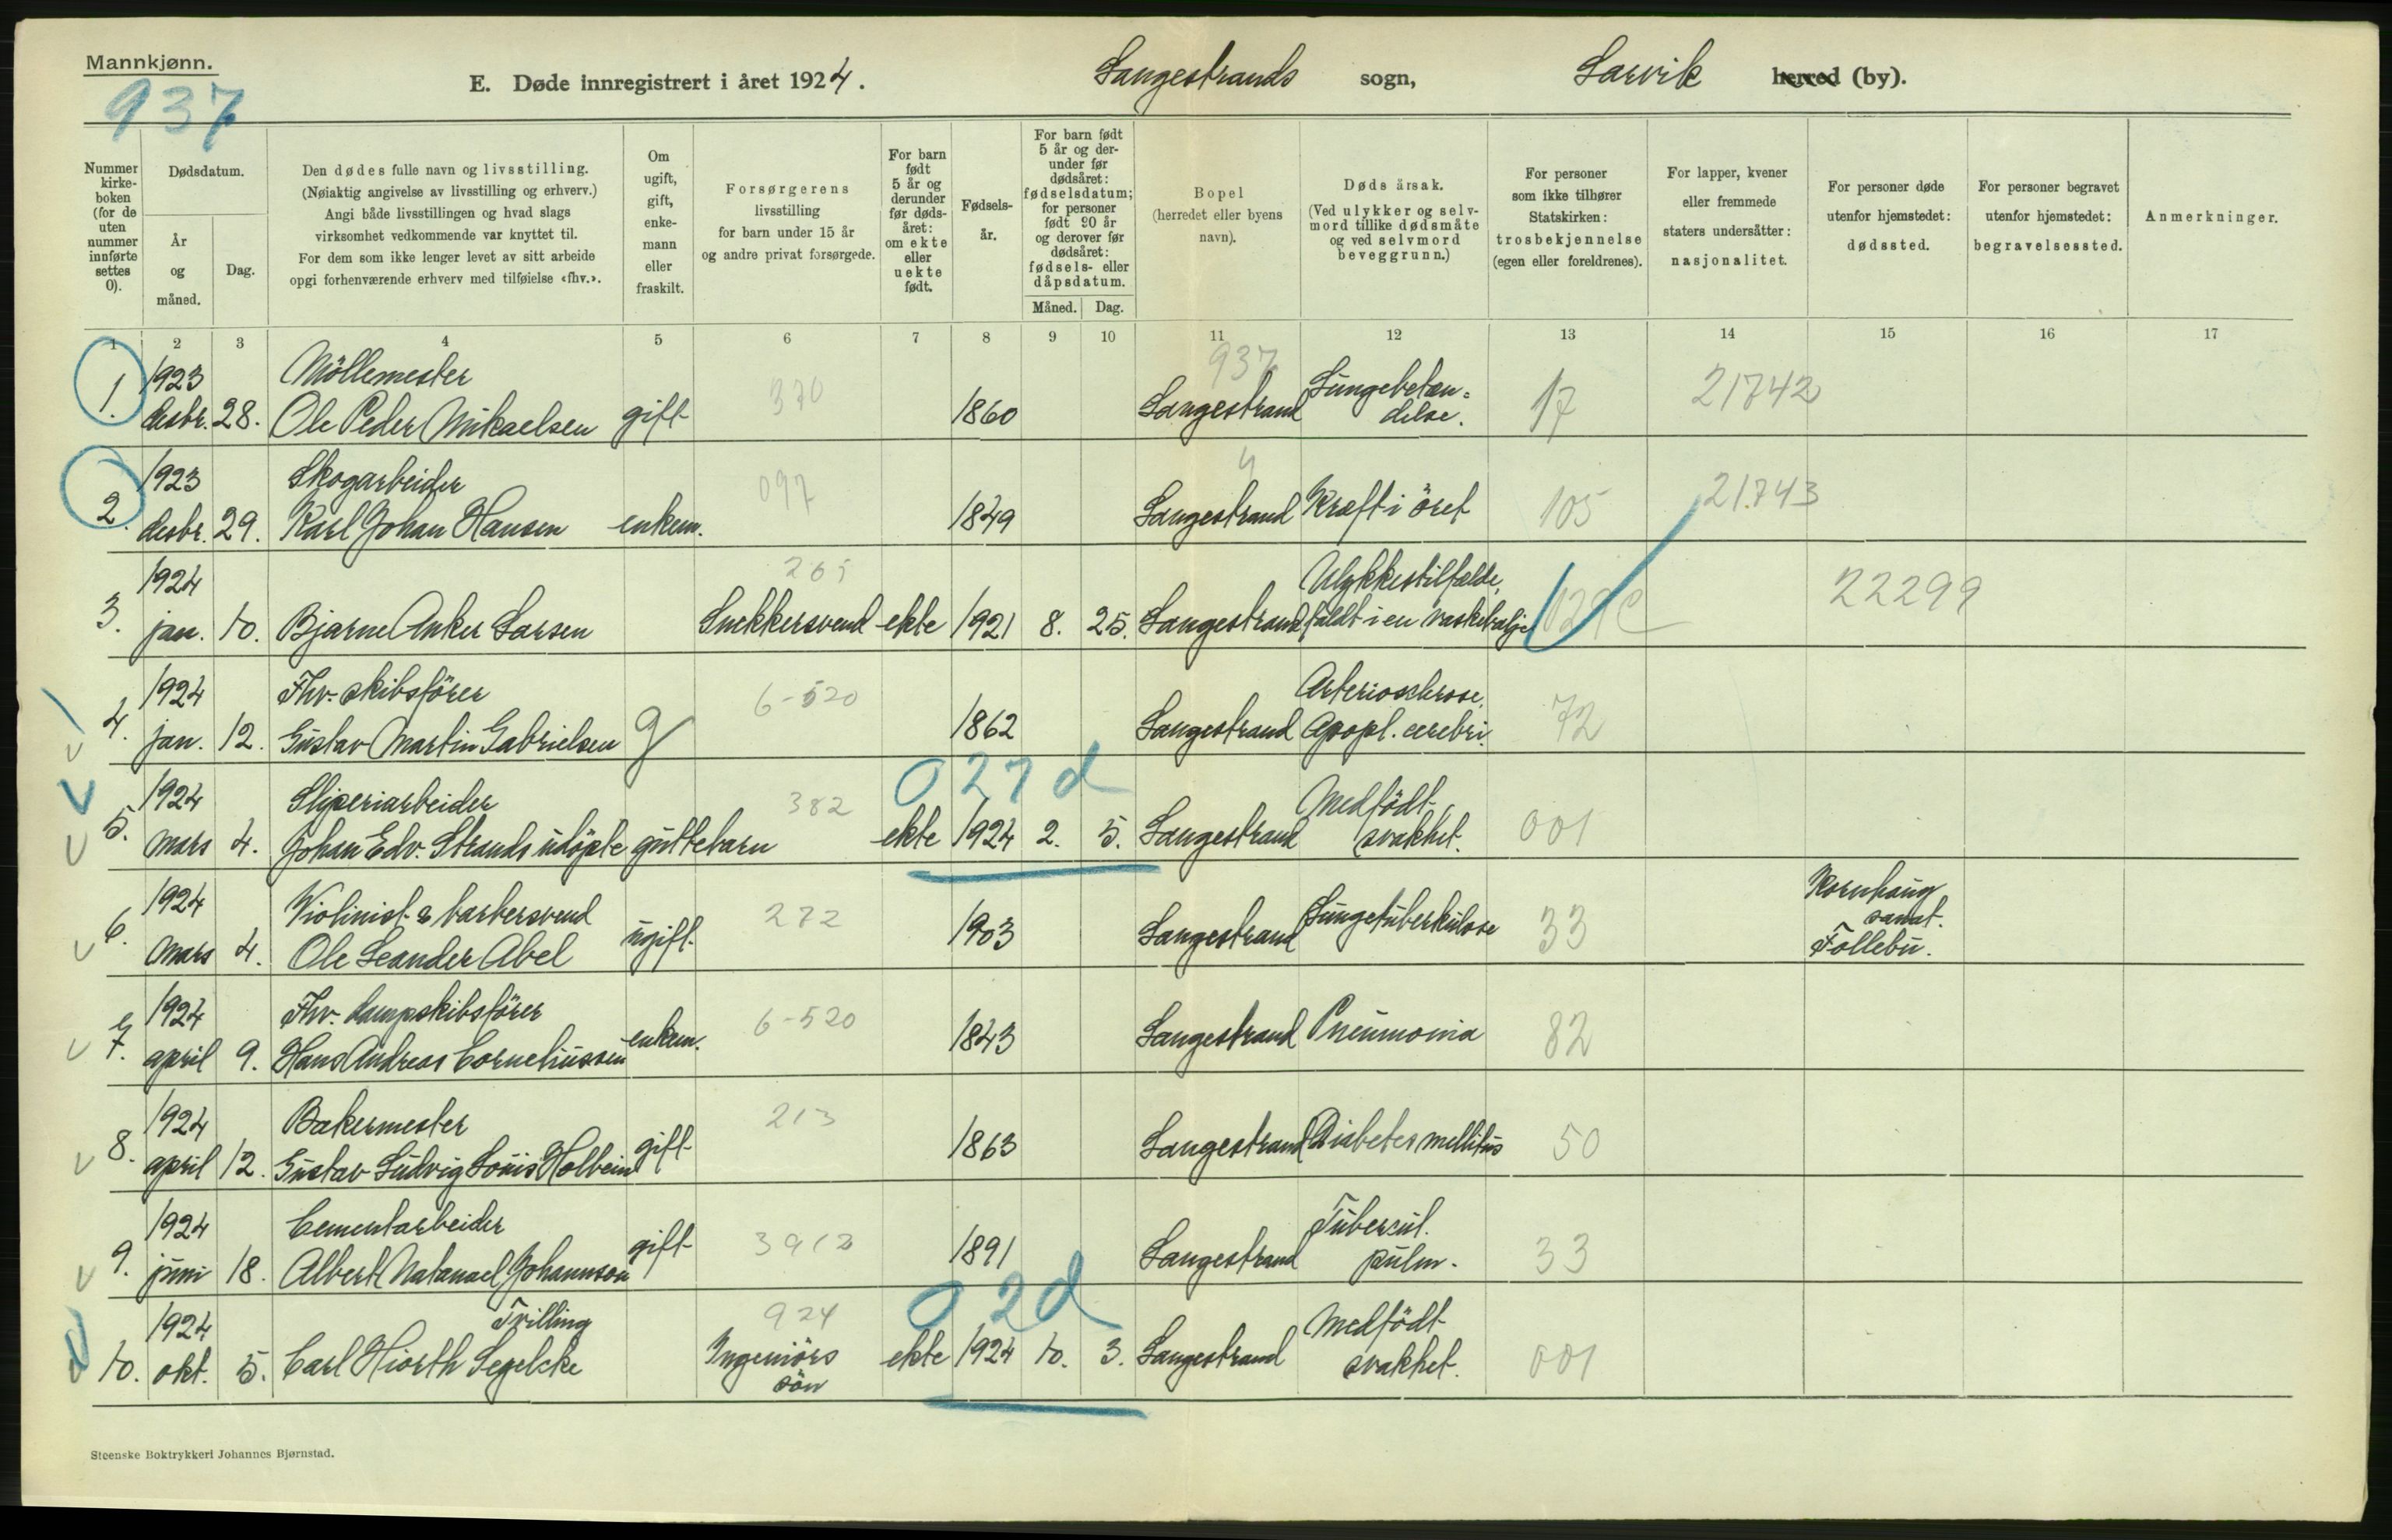 Mannkjønn.
937
E. Døde innregistrert i året 1924.
Langestrands sogn, Larvik herred (by).
Nummer kirke-boken (for de uten nummer innførte settes 0).
Dødsdatum.
År og måned.
Dag.
Den dødes fulle navn og livsstilling.
(Nøiaktig angivelse av livsstilling og erhverv.)
Angi både livsstillingen og hvad slags
virksomhet vedkommende var knyttet til.
For dem som ikke lenger levet av sitt arbeide
opgi forhenværende erhverv med tilføielse «fhv.».
Om ugift, gift, enke-mann eller fraskilt.
Forsørgerens livsstilling
for barn under 15 år
og andre privat forsørgede.
For barn født 5 år og derunder før døds-året: om ekte eller uekte født.
Fødsels-år.
For barn født 5 år og der-under før dødsåret: fødselsdatum; for personer født 90 år og derover før dødsåret: fødsels- eller dåpsdatum.
Måned. Dag.
Bopel
(herredet eller byens navn).
Døds årsak.
(Ved ulykker og selv-mord tillike dødsmåte og ved selvmord beveggrunn.)
For personer som ikke tilhører Statskirken: trosbekjennelse (egen eller foreldrenes).
For lapper, kvener eller fremmede staters undersåtter: nasjonalitet.
For personer døde utenfor hjemstedet: dødssted.
For personer begravet utenfor hjemstedet: begravelsessted.
Anmerkninger.
1 2 3 4 5 6 7 8 9 10 11 12 13 14 15 16 17
1923 Möllemester 370 937 Lungebetæn-
1. desbr. 28. Ole Peder Mikaelsen gift 1860 Langestrand delse. 17 21742
1923 Skogarbeider 097 4
2. desbr. 29. Karl Johan Hansen enkem. 1849 Langestrand Kræft i öret 105 21743
1924 265 Ulykkestilfælde,
3. jan. 10. Bjarne Anker Larsen Snekkersvend ekte 1921 8. 25. Langestrand faldt i en vaskebalje 22299
1924 Fhv. skibsförer 6-520 Arteriosclerose,
4. jan. 12. Gustav Martin Gabrielsen g 1862 Langestrand Apopl. cerebri. 72
027d
1924 Sliperiarbeider 382 Medfödt
5. mars 4. Johan Edv. Strands udöpte guttebarn ekte 1924 2. 5. Langestrand svakhet. 001
1924 Violinist & barbersvend 272 Kornhaug sanat.
6. mars 4. Ole Leander Abel ugift 1903 Langestrand Lungetuberkulose 33 Follebu.
1924 Fhv. dampskibsförer 6-520
7. april 9. Hans Andreas Corneliussen enkem. 1843 Langestrand Pneumonia 82
1924 Bakermester 213
8. april 12. Gustav Ludvig Louis Holbein gift 1863 Langestrand Diabetes mellitus 50
1924 Cementarbeider 3912 Tubercul.
9. juni 18. Albert Natanael Johannson gift 1891 Langestrand pulm. 33
02d
1924 Tvilling 924 Medfödt
10. okt. 5. Carl Hiorth Segelcke Ingeniörs sön ekte 1924 10. 3. Langestrand svakhet. 001
Steenske Boktrykkeri Johannes Bjørnstad.